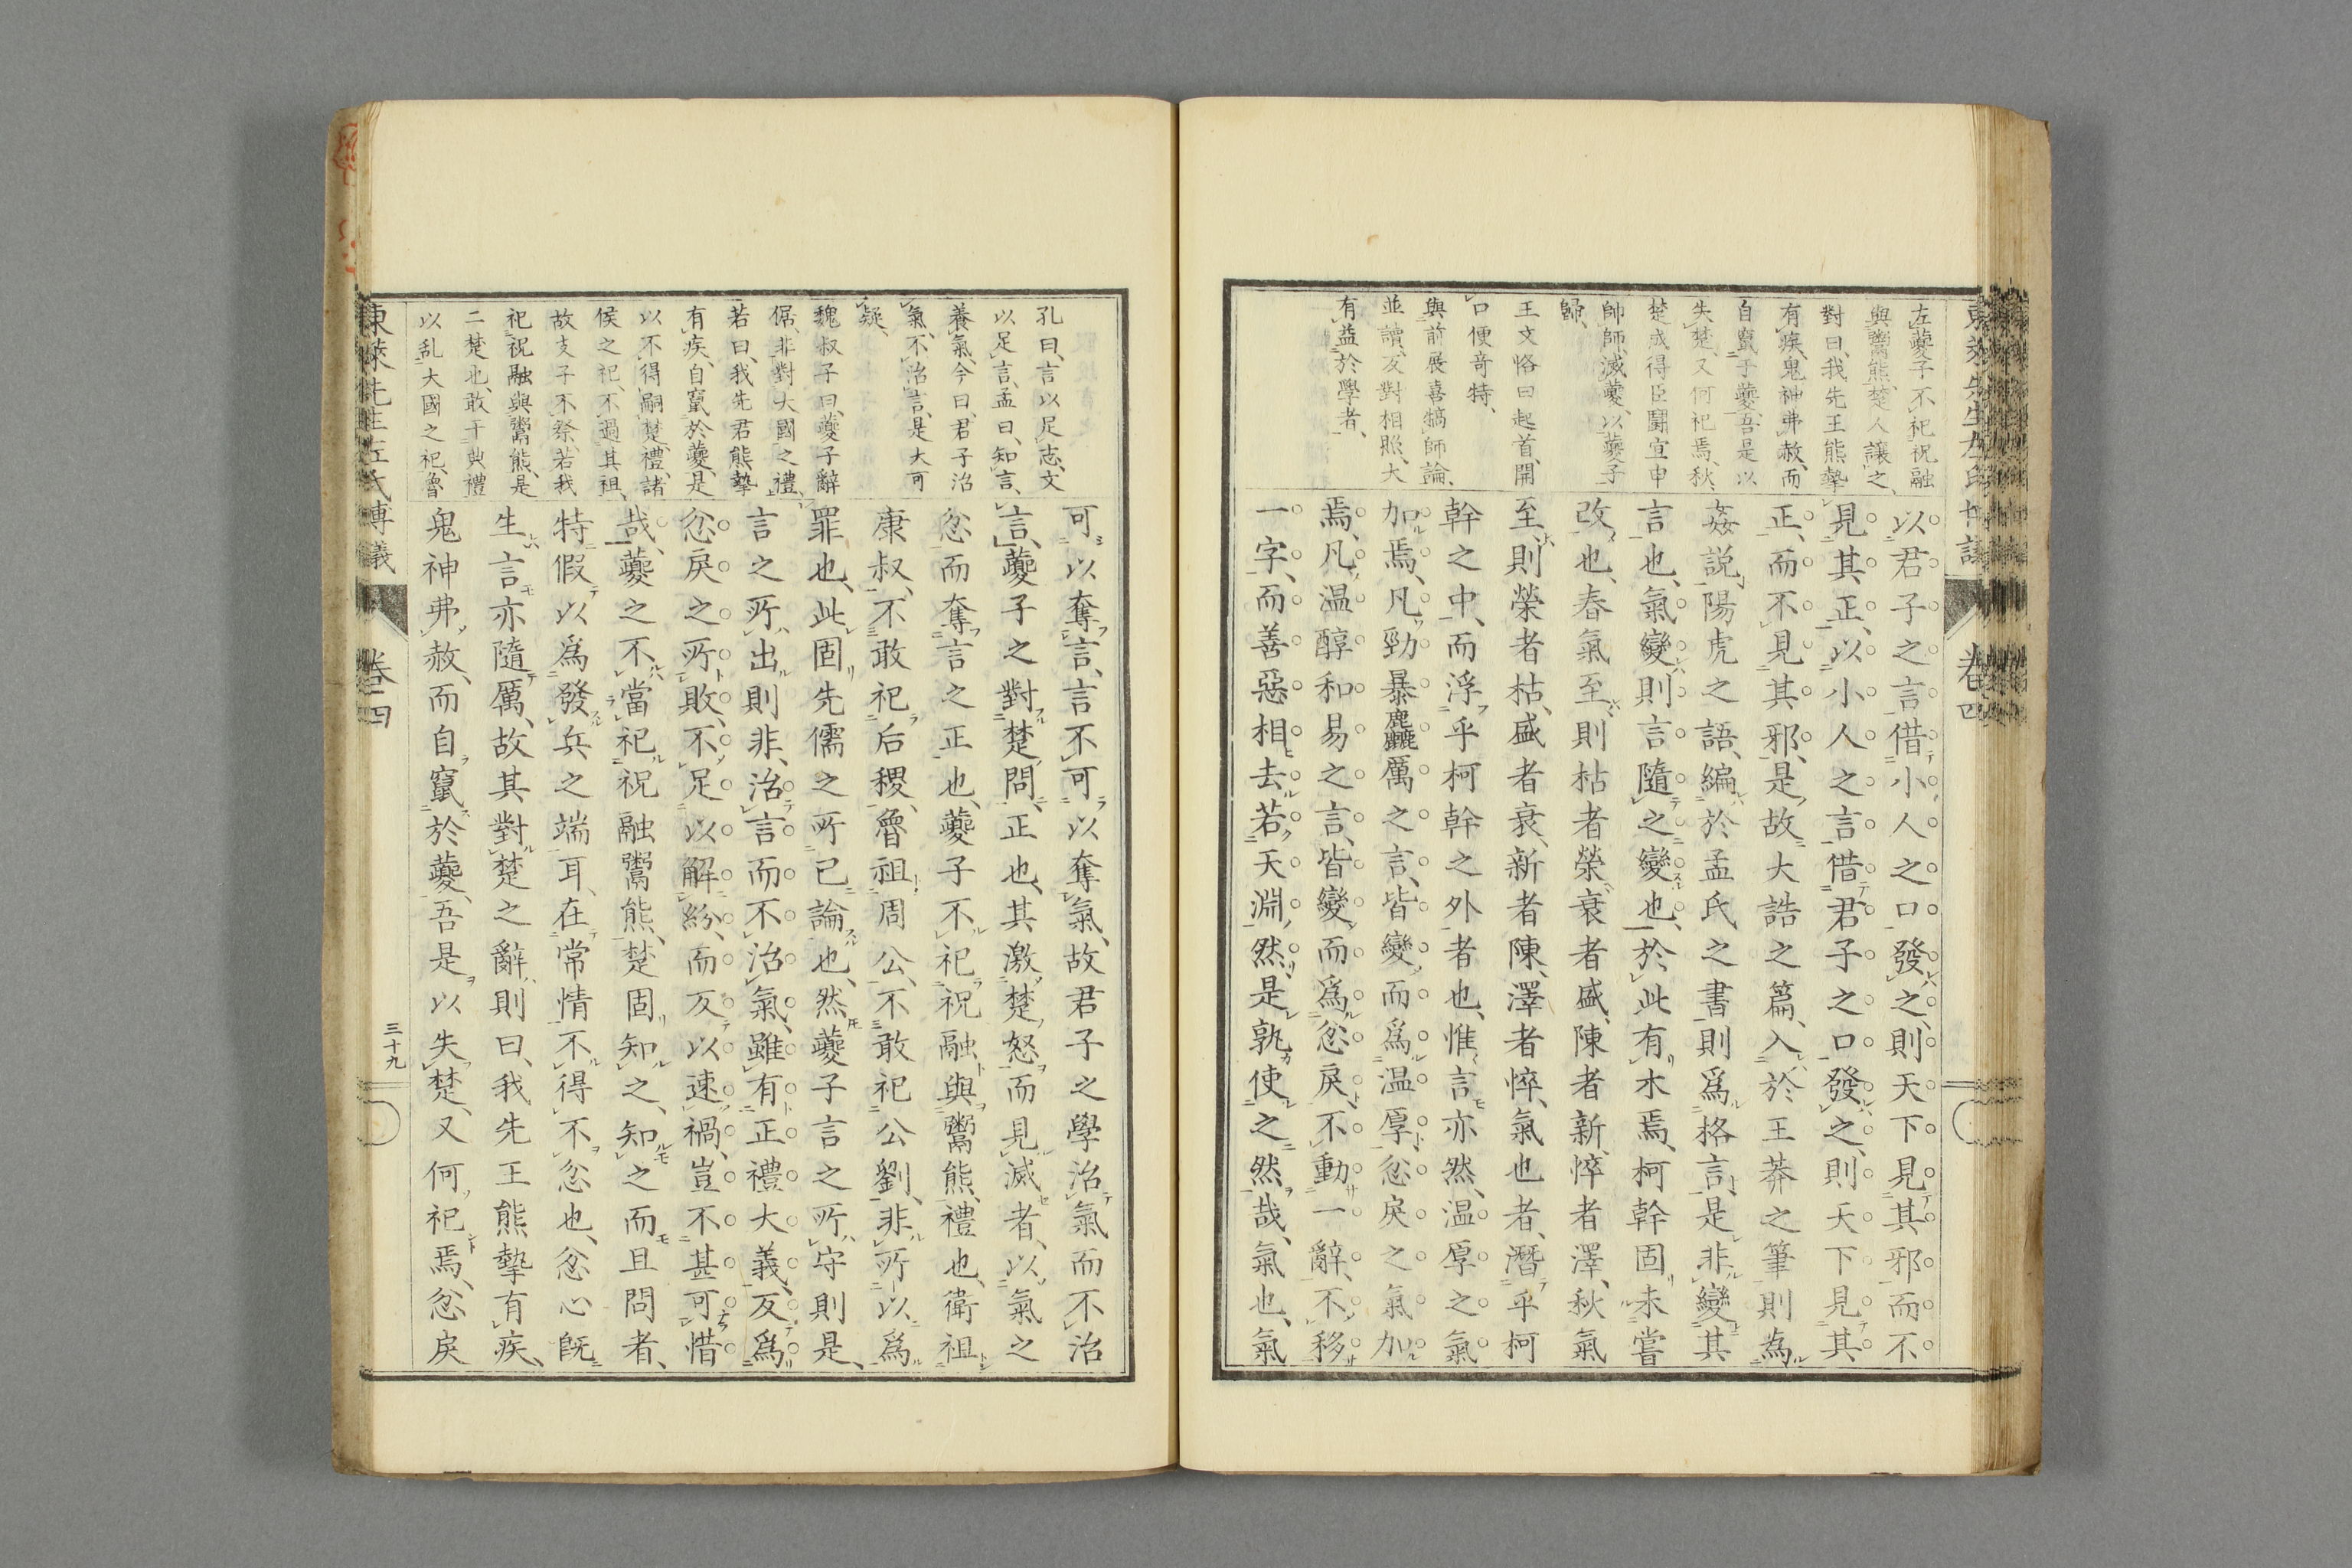 左夔子不祀祝融
與鬻熊楚人讓之、
對曰、我先王熊摯
有疾、鬼神弗赦、而
自竄于夔、吾是以
失楚、又何祀焉、秋、
楚成得臣鬭宜申
帥師、滅夔、以夔子
歸、
王文恪曰起首、開
口便奇特、
與前展喜犒師論、
並讀、反對相照、大
有益於學者、
以君子之言借小人之口發之、則天下見其邪而不
見其正、以小人之言借君子之口發之、則天下見其
正、而不見其邪、是故大誥之篇、入於王莽之筆則為
姦説、陽虎之語、編於孟氏之書則爲格言、是非變其
言也、氣變則言隨之變也、於此有木焉、柯幹固未嘗
改也、春氣至、則枯者榮、衰者盛、陳者新、悴者澤、秋氣
至、則榮者枯、盛者衰、新者陳、澤者悴、氣也者、潛乎柯
幹之中、而浮乎柯幹之外者也、惟言亦然、温厚之氣
加焉、凡勁暴麤厲之言、皆變而爲温厚、忿戾之氣加
焉、凡温醇和易之言、皆變而爲忿戾、不動一辭、不移
一字、而善惡相去、若天淵、然、是孰使之然哉、氣也、氣
東萊先生左氏博議
卷四
孔曰、言以足志、文
以足言、孟曰、知言、
養氣、今曰、君子治
氣、不治言、是大可
疑、
魏叔子曰、夔子辭
倨、非對大國之禮、
若曰、我先君熊摯
有疾、自竄於夔、是
以不得嗣楚、禮、諸
侯之祀、不過其祖、
故支子不祭、若我
祀祝融與鬻熊、是
二楚也、敢干典禮
以乱大國之祀、魯
可以奪言、言不可以奪氣、故君子之學治氣而不治
言、夔子之對楚問、正也、其激楚怒而見滅者、以氣之
忿而奪言之正也、夔子不祀祝融與鬻熊、禮也、衛祖
康叔、不敢祀后稷、魯祖周公、不敢祀公劉、非所以爲
罪也、此固先儒之所已論也、然夔子言之所守則是、
言之所出則非、治言而不治氣、雖有正禮大義、反爲
忿戾之所敗、不足以解紛、而反以速禍、豈不甚可惜
哉、夔之不當祀祝融鬻熊、楚固知之、知之而且問者、
特假以爲發兵之端耳、在常情不得不忿也、忿心既
生、言亦隨厲、故其對楚之辭、則曰、我先王熊摯有疾、
鬼神弗赦、而自竄於夔、吾是以失楚、又何祀焉、忿戾
東萊先生左氏博議
卷四
三十九